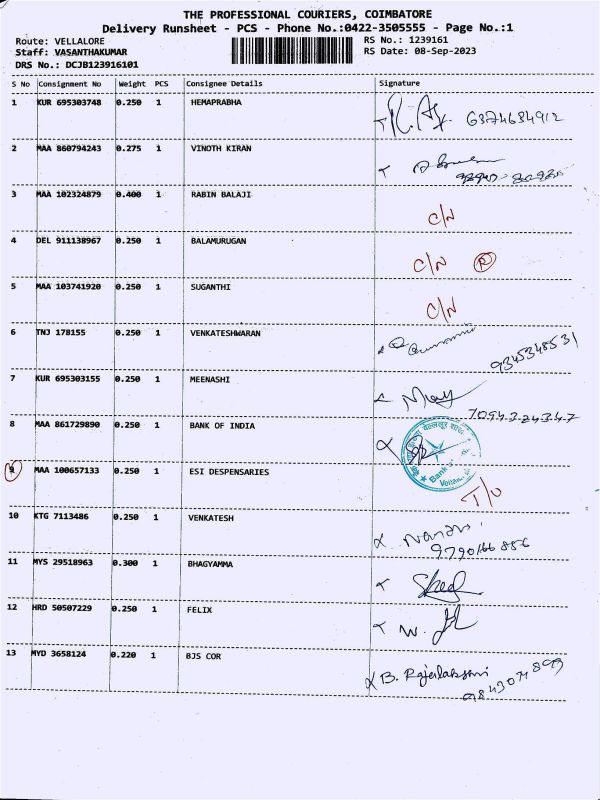 THE PROFESSIONAL COURIERS, COIMBATORE
Delivery Runsheet - PCS - Phone No.:0422-3505555 - Page No.:1
Route: VELLALORE RS No.: 1239161
Staff: VASANTHAKUMAR RS Date: 08-Sep-2023
DRS No.: DCJB123916101
S No Consignment No Weight PCS Consignee Details Signature
1 KUR 695303748 0.250 1 HEMAPRABHA 6374634912
2 MAA 860794243 0.275 1 VINOTH KIRAN
3 MAA 102324879 0.400 1 RABIN BALAJI C/N
4 DEL 911138967 0.250 1 BALAMURUGAN C/N R
5 MAA 103741920 0.250 1 SUGANTHI C/N
6 TNJ 178155 0.250 1 VENKATESHWARAN 9345348531
7 KUR 695303155 0.250 1 MEENASHI May
7094324347
8 MAA 861729890 0.250 1 BANK OF INDIA
9 MAA 100657133 0.250 1 ESI DESPENSARIES T/O
10 KTG 7113486 0.250 1 VENKATESH
9790166856
11 MYS 29518963 0.300 1 BHAGYAMMA
12 HRD 50507229 0.250 1 FELIX
13 MYD 3658124 0.220 1 BJS COR B. Rajalakshmi
9843071899